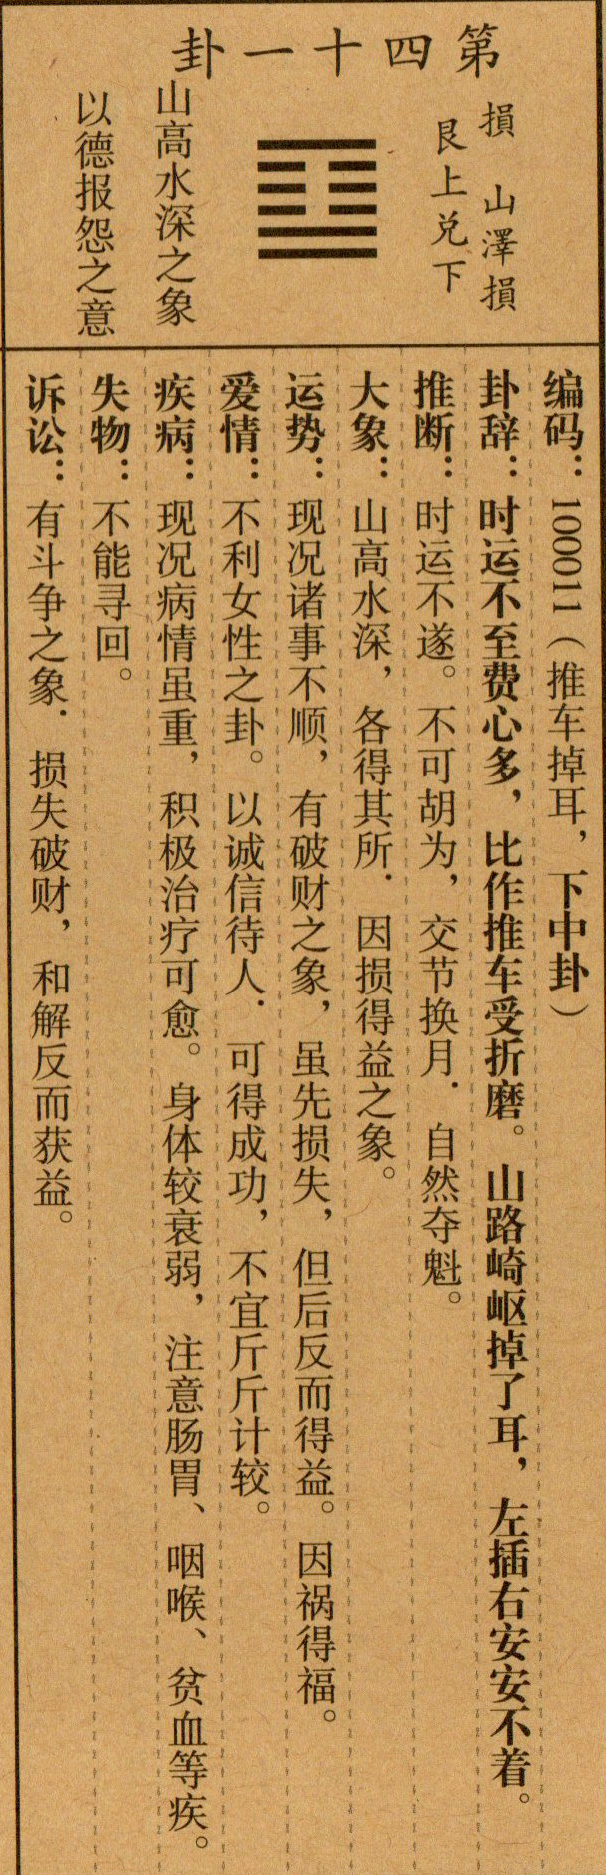 第四十一卦
損 山澤損
艮上兑下
山高水深之象
以德报怨之意
编码：100011（推车掉耳，下中卦）
卦辞：时运不至费心多，比作推车受折磨。山路崎岖掉了耳，左插右安安不着。
推断：时运不遂。不可胡为，交节换月．自然夺魁。
大象：山高水深，各得其所．因损得益之象。
运势：现况诸事不顺，有破财之象，虽先损失，但后反而得益。因祸得福。
爱情：不利女性之卦。以诚信待人．可得成功，不宜斤斤计较。
疾病：现况病情虽重，积极治疗可愈。身体较衰弱，注意肠胃、咽喉、贫血等疾。
失物：不能寻回。
诉讼：有斗争之象．损失破财，和解反而获益。